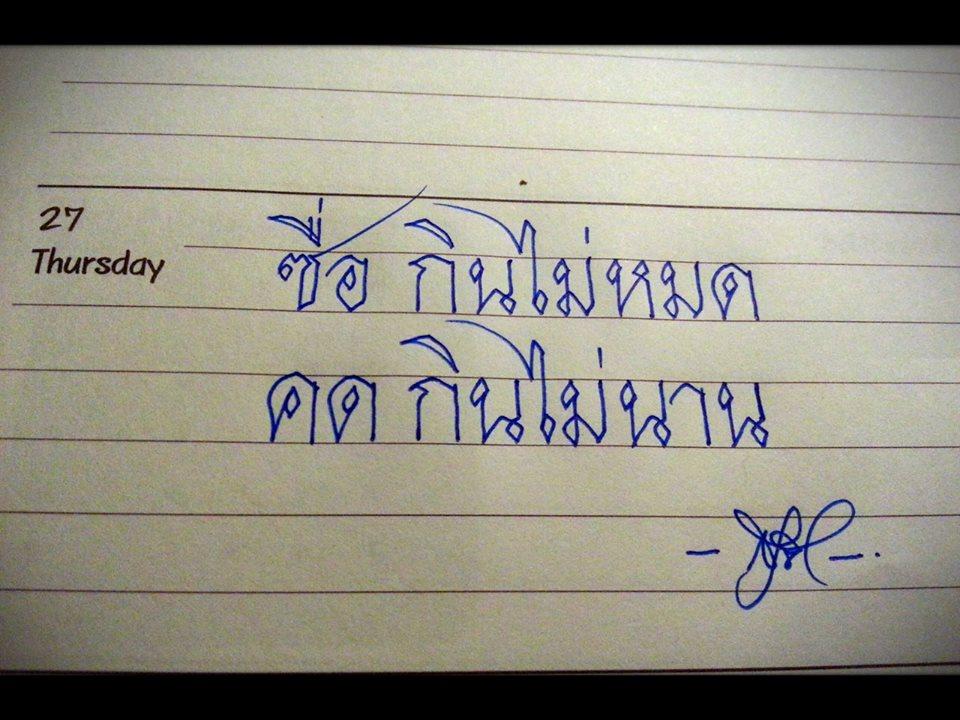 27
Thursday
ซื่อ กินไม่หมด
คด กินไม่นาน